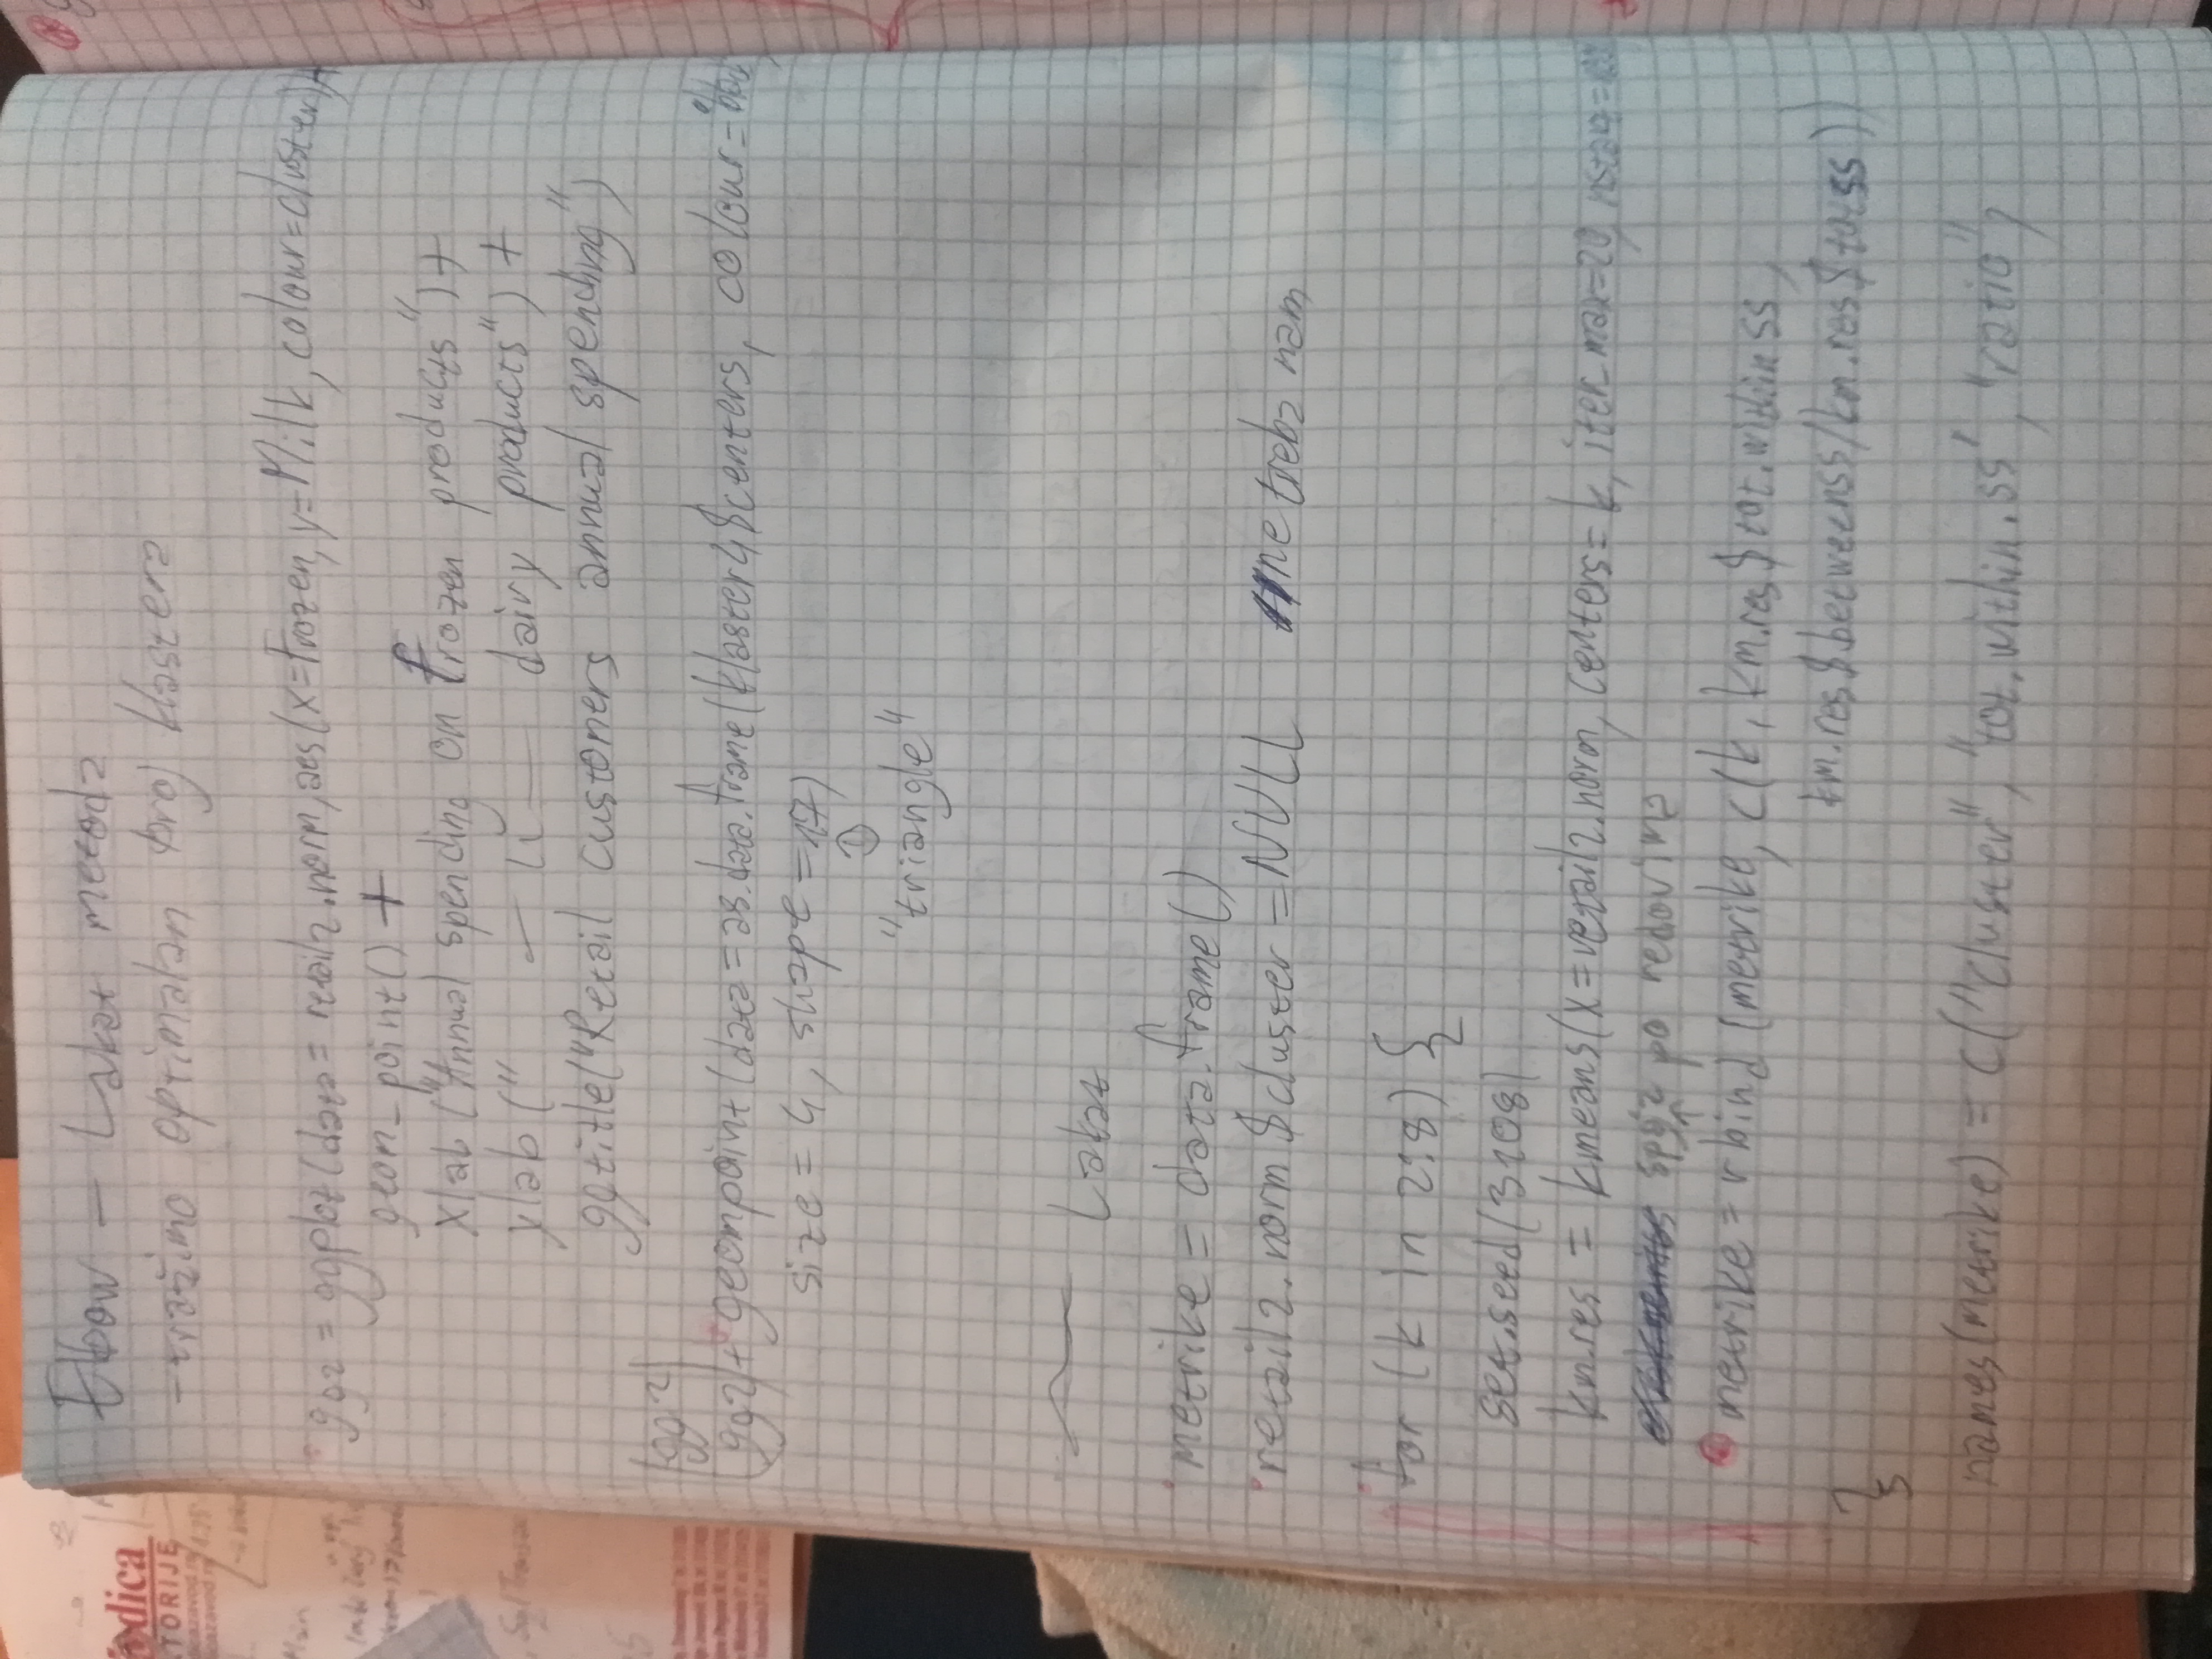 Elbow — Lakat metoda
- tražimo optimalan broj klastera
gg2 = ggplot(data = retail2.norm, aes(x=Frozen, y=Milk, colour=cluster))+
geom_point() +
xlab ("Annual spending on frozen products") +
ylab (" — 11 — dairy products") +
ggtitle("Retail customers annual spending")
gg2
gg2 + geompoint (data = as.data.frame(klaster4$centers, colour=
size = 4, shape = 17)
"triangle"
Lakat
metrike = data.frame()
retail2.norm $cluster = NULL ne treba nam
for (k in 2:8) {
set.seed(3108)
km.res = kmeans(x=retail2.norm, centers=k, iter.max=20, nstart=
spaja po redovima
metrike = rbind (metrike, c(k, km.res$tot.withinss,
km.res$betweenss/km.res$totss))
}
names(metrike) = c("cluster", "tot.within.ss", "ratio")
dica
TORIJE